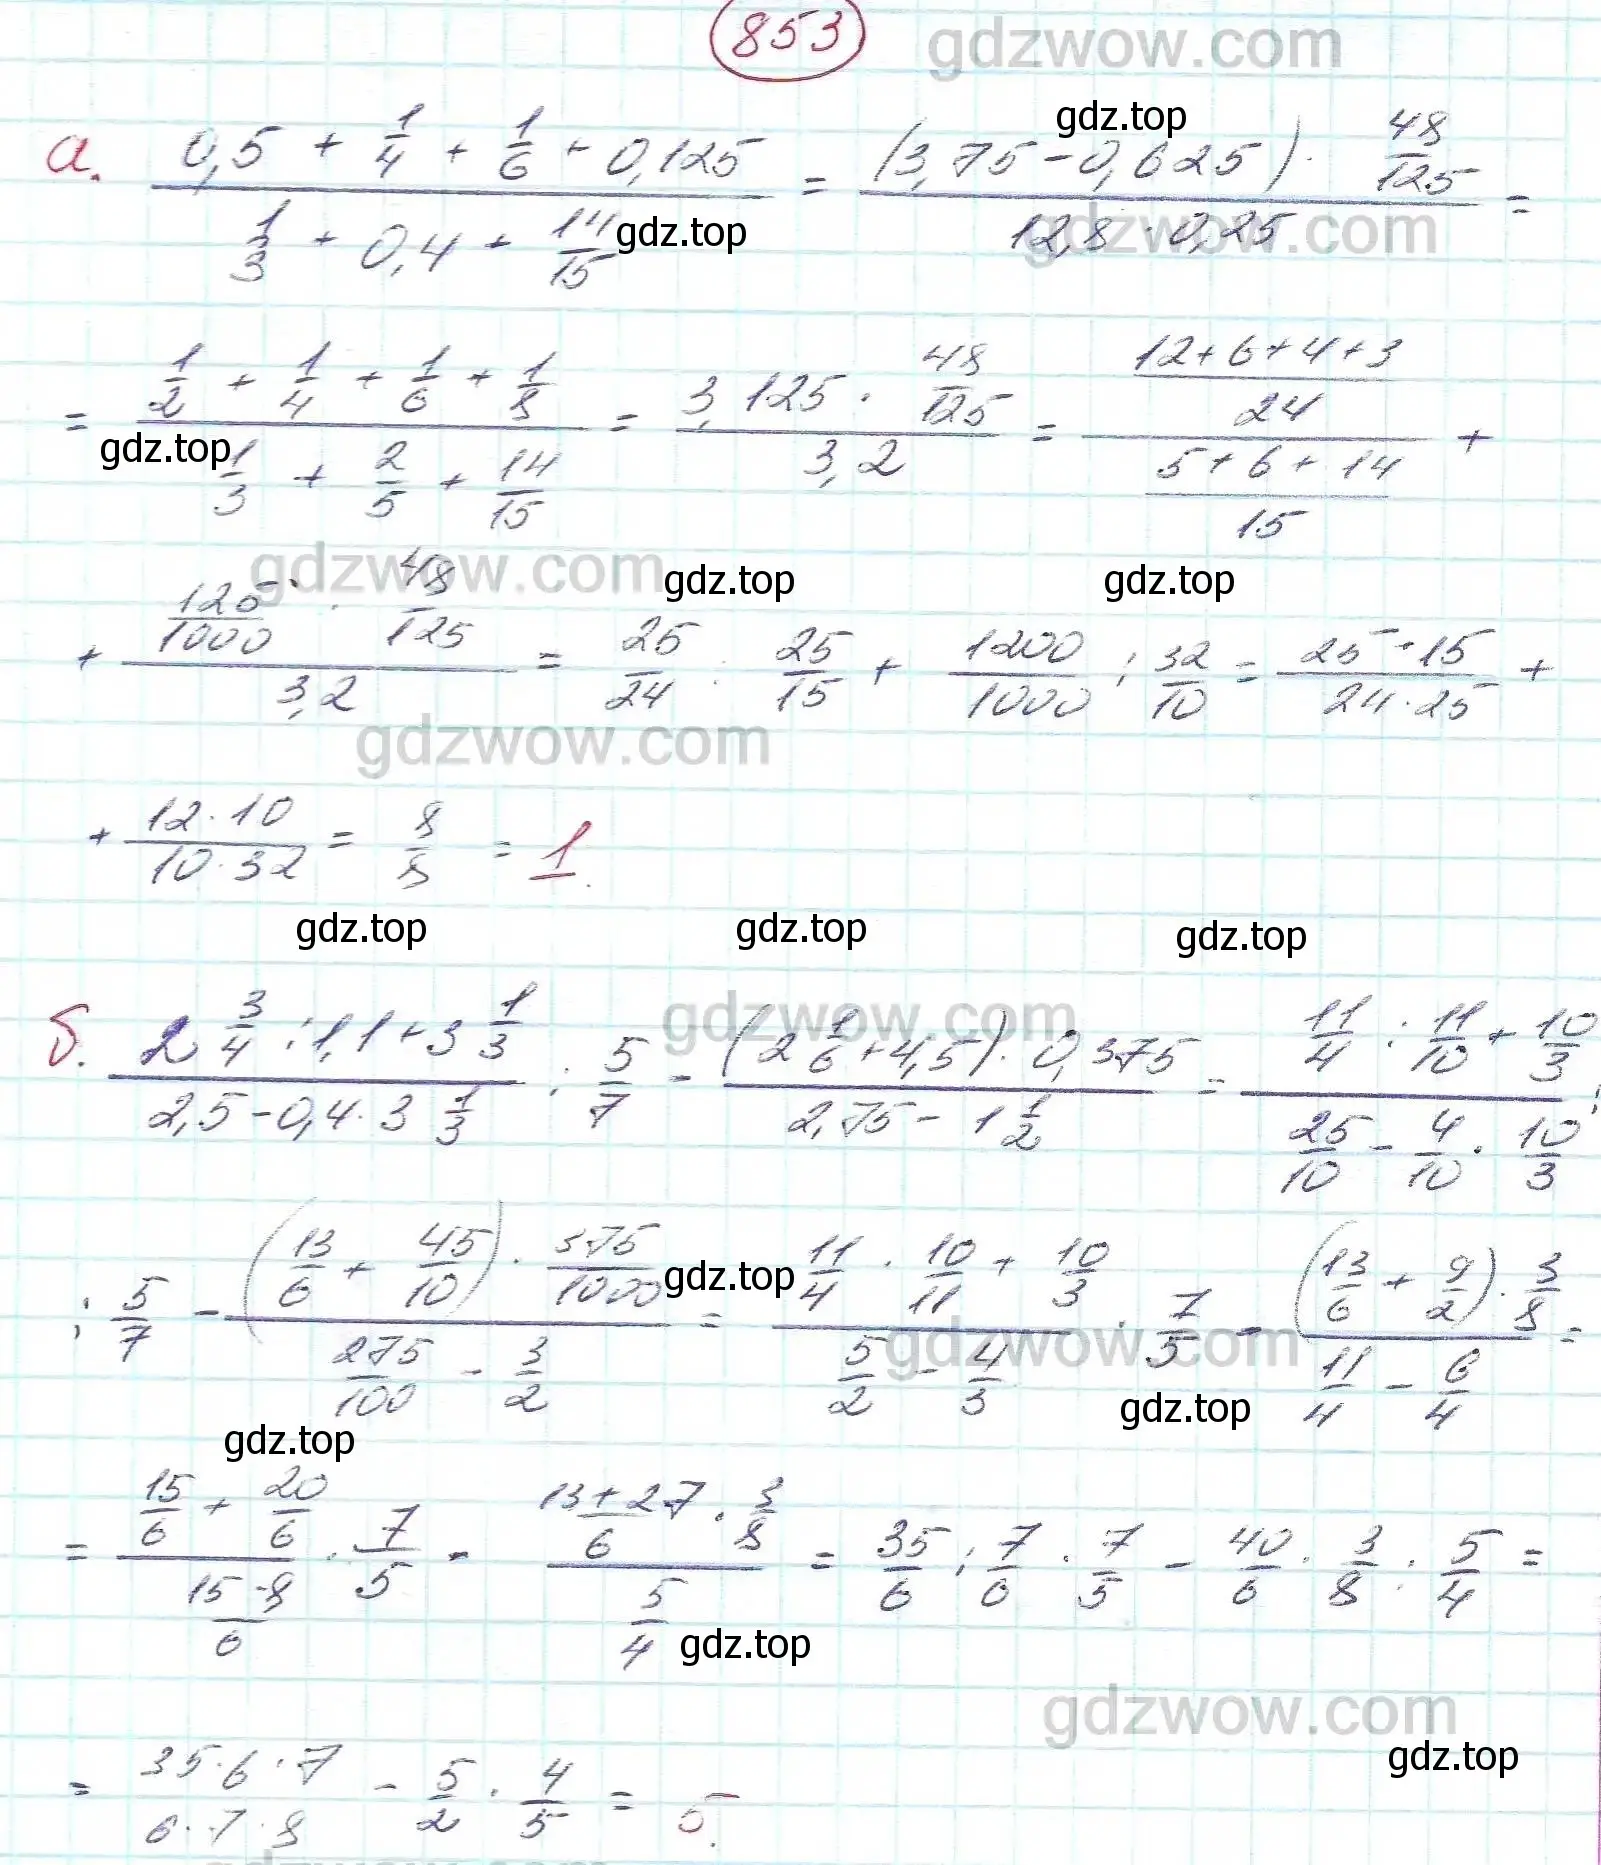 853
gdzwow.com
gdz.top
а. (0,5 + 1/4 + 1/6 + 0,125)/(1/3 + 0,4 + 14/15) = ((3,75 - 0,625) · 48/125)/(12,8 · 0,25) =
gdz.top gdzwow.com
= (1/2 + 1/4 + 1/6 + 1/8)/(1/3 + 2/5 + 14/15) = (3,125 · 48/125)/3,2 = ((12+6+4+3)/24)/((5+6+14)/15) +
gdz.top
gdzwow.com gdz.top gdz.top
+ (125/1000 · 48/125)/3,2 = 25/24 : 25/15 + 1200/1000 : 32/10 = (25·15)/(24·25) +
gdzwow.com
+ (12·10)/(10·32) = 8/8 = 1.
gdz.top gdz.top gdz.top
gdzwow.com
б. (2 3/4 : 1,1 + 3 1/3)/(2,5 - 0,4 · 3 1/3) : 5/7 - ((2 1/6 + 4,5) · 0,375)/(2,75 - 1 1/2) = (11/4 : 11/10 + 10/3)/(25/10 - 4/10 · 10/3) :
: 5/7 - ((13/6 + 45/10) · 375/1000)/(275/100 - 3/2) = (11/4 · 10/11 + 10/3)/(5/2 - 4/3) · 7/5 - ((13/6 + 9/2) · 3/8)/(11/4 - 6/4) =
gdz.top gdzwow.com gdz.top
gdz.top
= (15/6 + 20/6)/((15-8)/6) · 7/5 - ((13+27)/6 · 3/8)/(5/4) = 35/6 : 7/6 · 7/5 - 40/6 · 3/8 : 5/4 =
gdz.top
gdzwow.com
gdz.top
= (35·6·7)/(6·7·8) - 5/2 · 4/5 = 5.
gdzwow.com